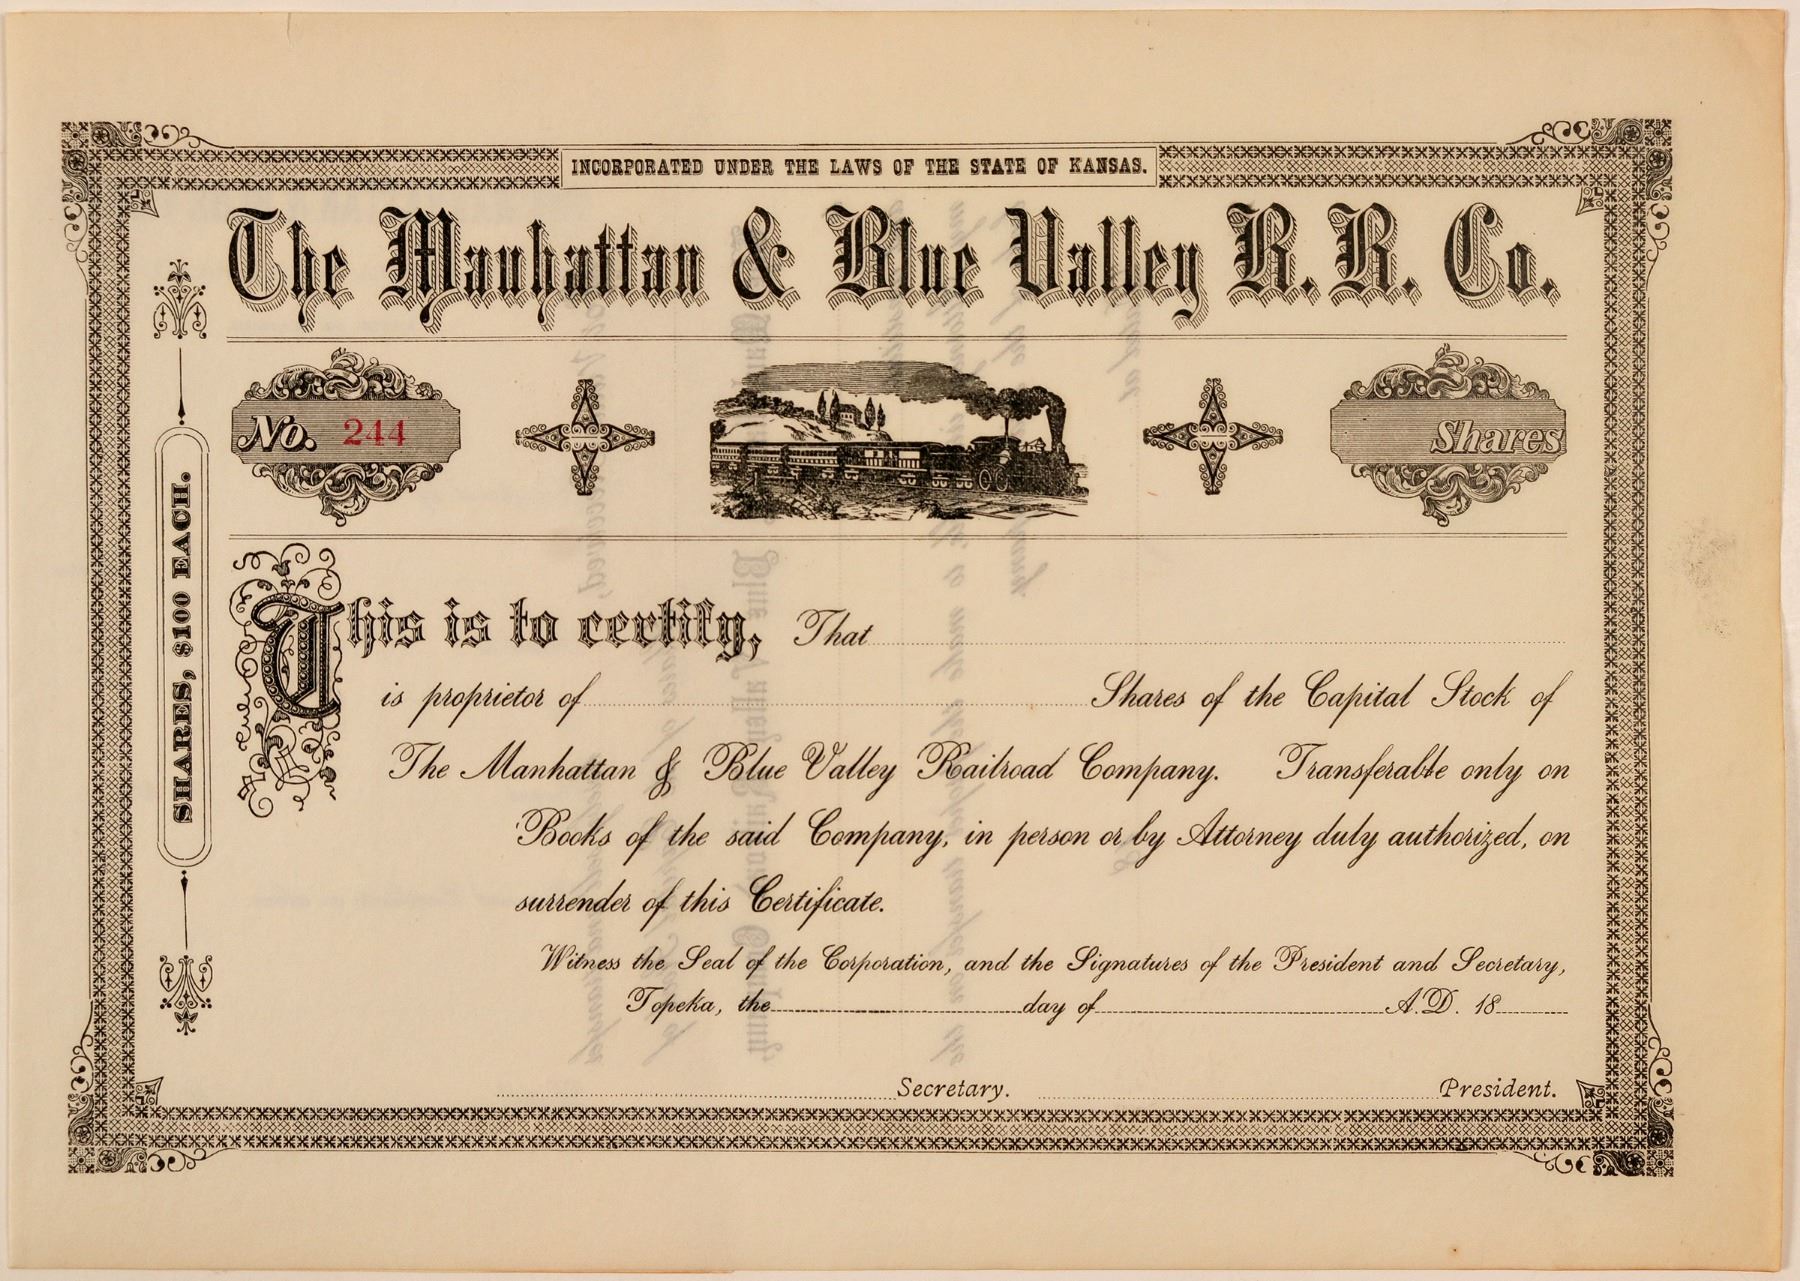 INCORPORATED UNDER THE LAWS OF THE STATE OF KANSAS.
The Manhattan & Blue Valley R. R. Co.
No. 244
Shares
SHARES, $100 EACH.
This is to certify, That
is proprietor of Shares of the Capital Stock of
The Manhattan & Blue Valley Railroad Company. Transferable only on
Books of the said Company, in person or by Attorney duly authorized, on
surrender of this Certificate.
Witness the Seal of the Corporation, and the Signatures of the President and Secretary,
Topeka, the day of A.D. 18
Secretary. President.